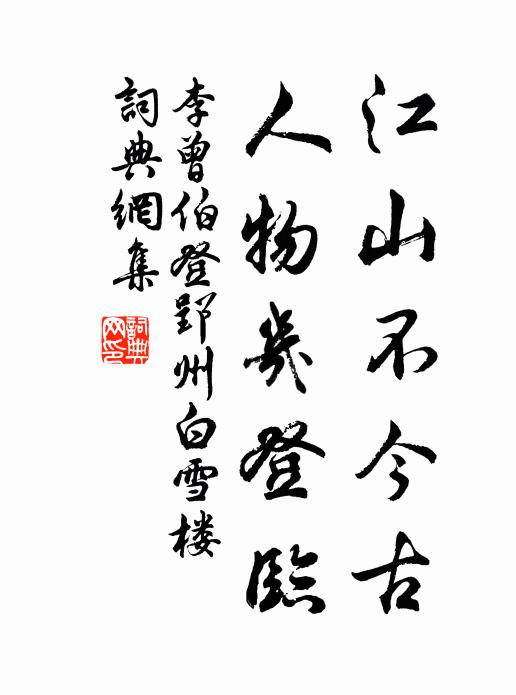 江山不今古
人物幾登臨
李曾伯登郢州白雪楼
詞典網集
詞典网印